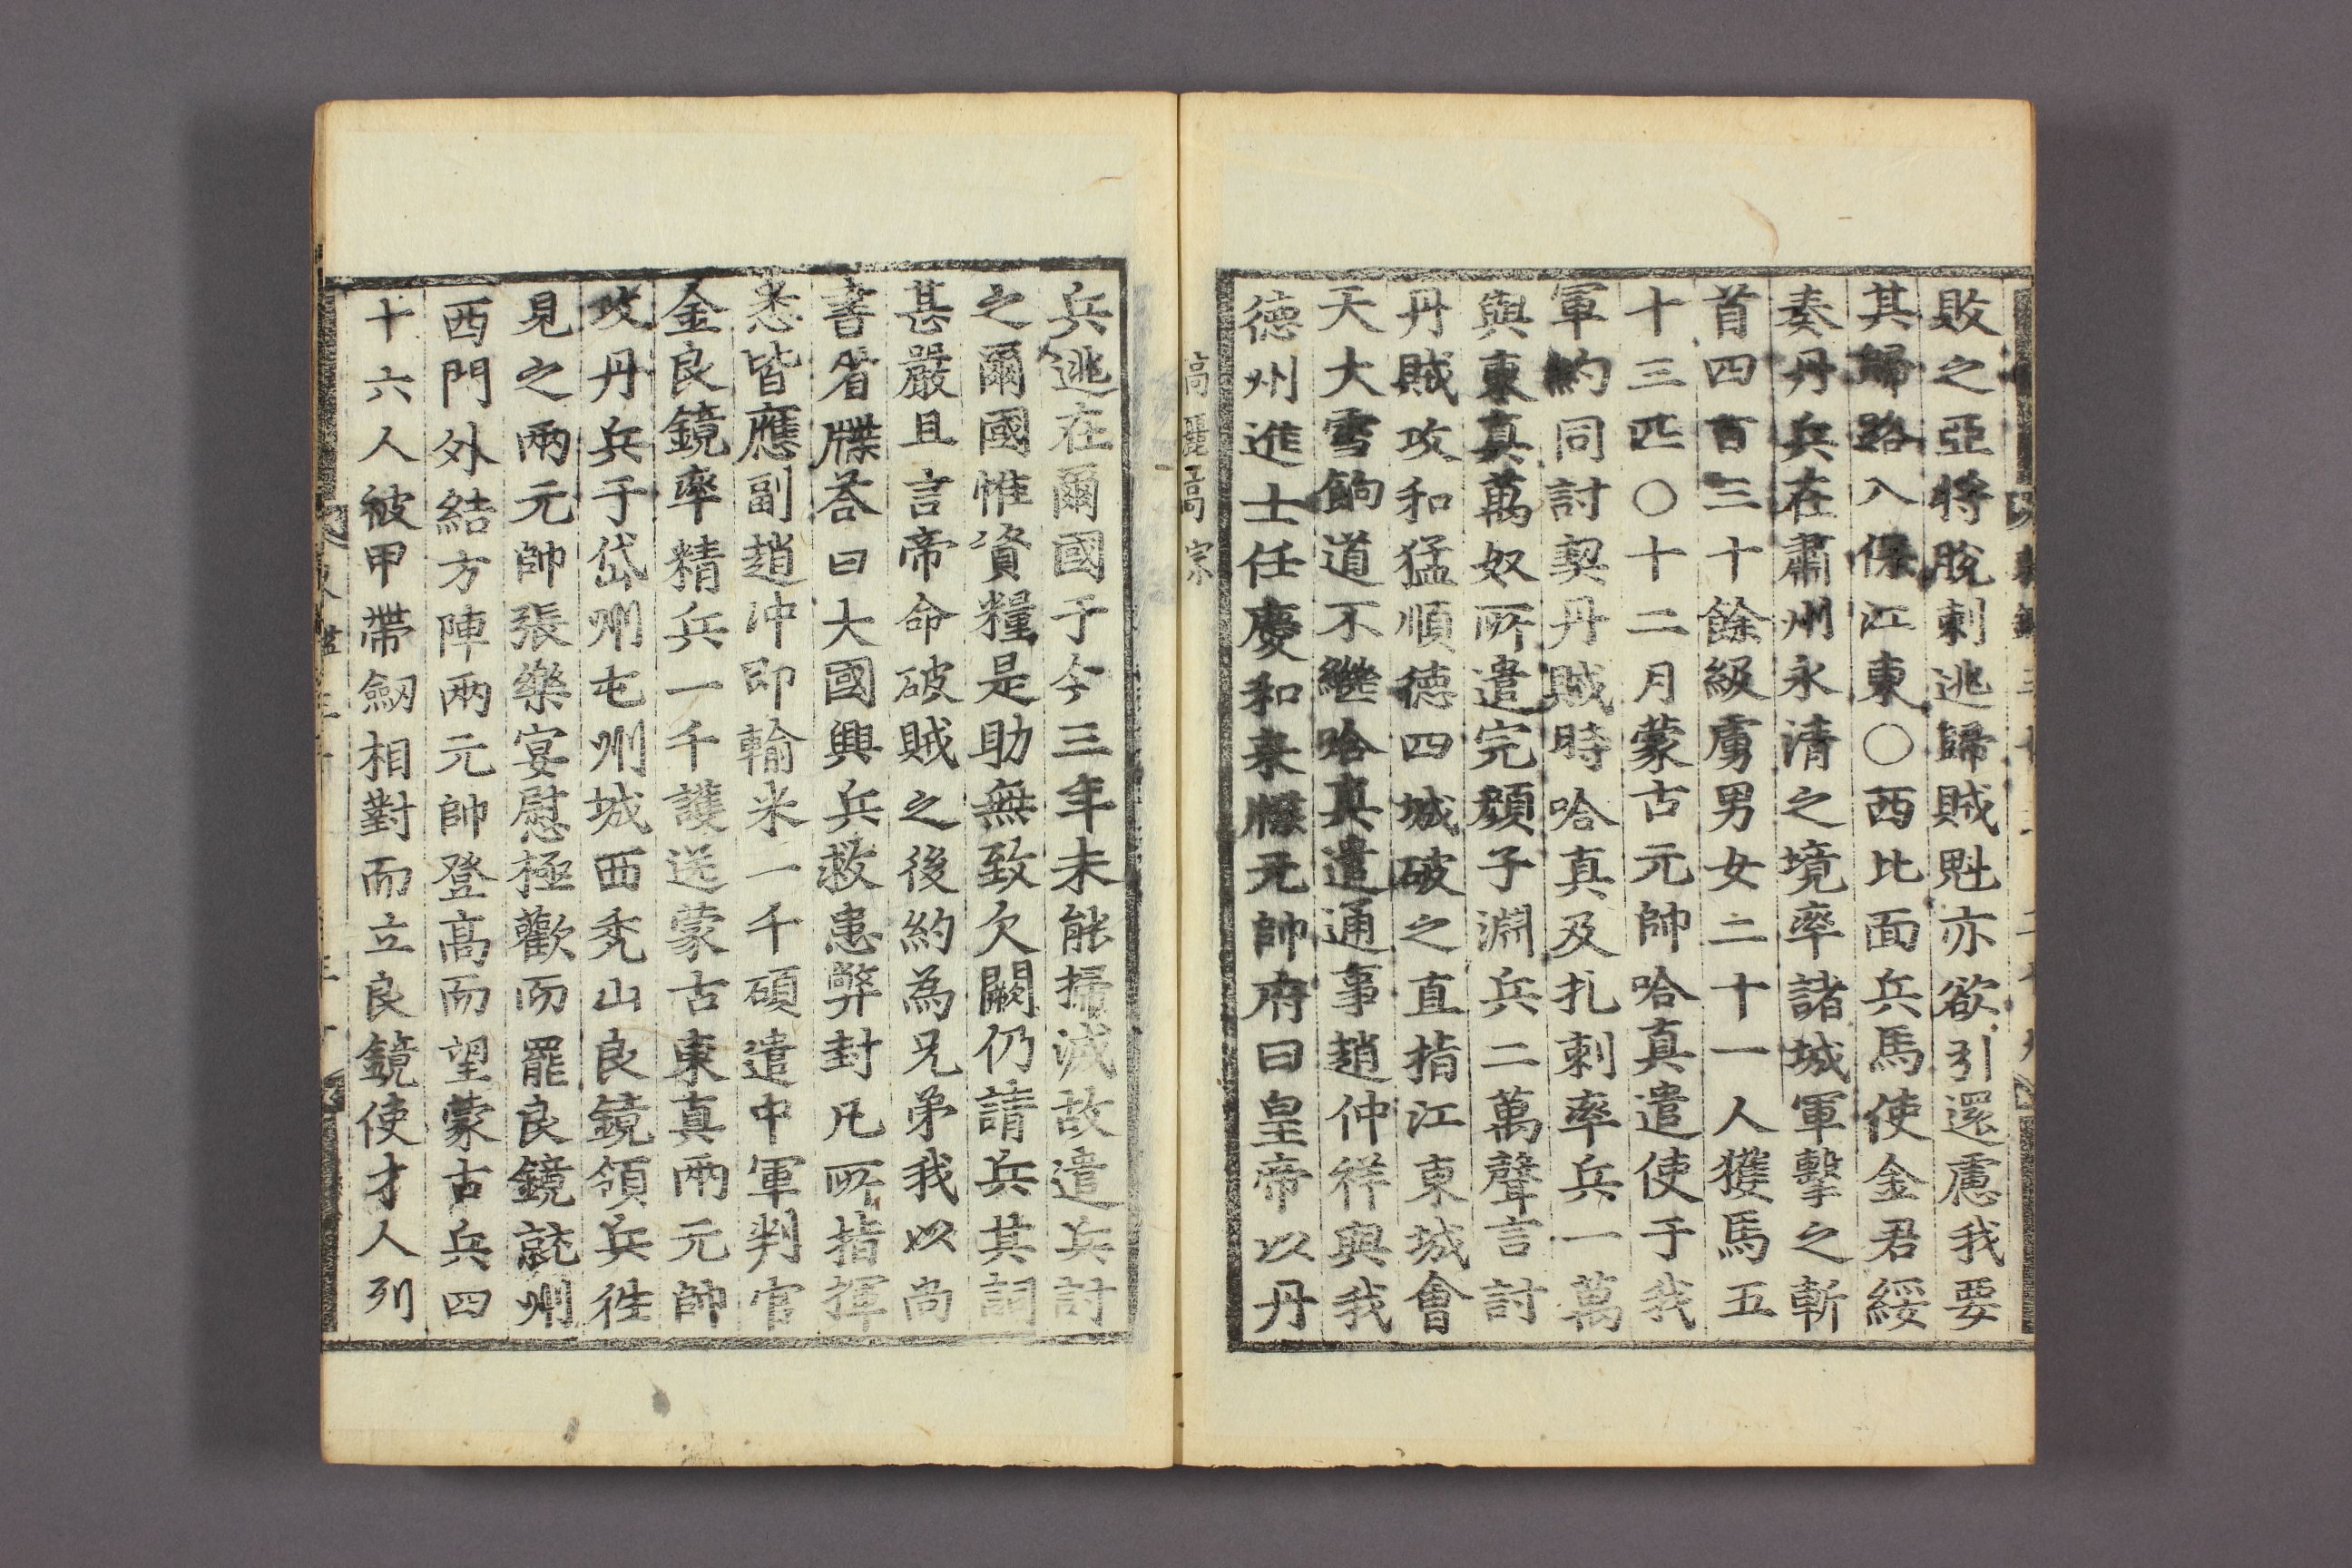 敗之亞將脫剌逃歸賊魁亦欲引還慮我要
其歸路入保江東○西北面兵馬使金君綏
奏丹兵在肅州永清之境率諸城軍擊之斬
首四百三十餘級虜男女二十一人獲馬五
十三匹○十二月蒙古元帥哈真遣使于我
軍約同討契丹賊時哈真及扎剌率兵一萬
與東真萬奴所遣完顏子淵兵二萬聲言討
丹賊攻和猛順德四城破之直指江東城會
天大雪餉道不繼哈真遣通事趙仲祥與我
德州進士任慶和来牒元帥府曰皇帝以丹
高麗高宗
兵逃在爾國于今三年未能掃滅故遣兵討
之爾國惟資糧是助無致欠闕仍請兵其詞
甚嚴且言帝命破賊之後約為兄弟我以尚
書省牒荅曰大國興兵救患弊封凡所指揮
悉皆應副趙冲即輸米一千碩遣中軍判官
金良鏡率精兵一千護送蒙古東真兩元帥
攻丹兵于岱州屯州城西禿山良鏡領兵徃
見之兩元帥張樂宴慰極歡而罷良鏡就州
西門外結方陣兩元帥登高而望蒙古兵四
十六人被甲帶劒相對而立良鏡使才人列